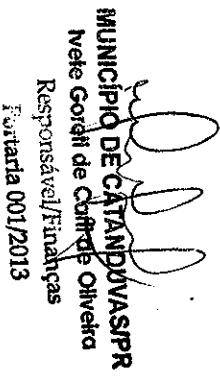 MUNICÍPIO DE CATANDUVAS/PR
Ivete Goreti de de Oliveira
Responsável/Finanças
Portaria 001/2013